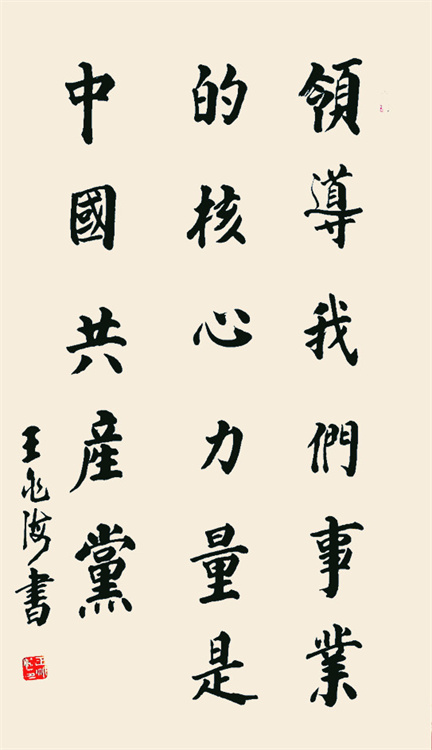 領導我們事業
的核心力量是
中國共産黨
王兆海書